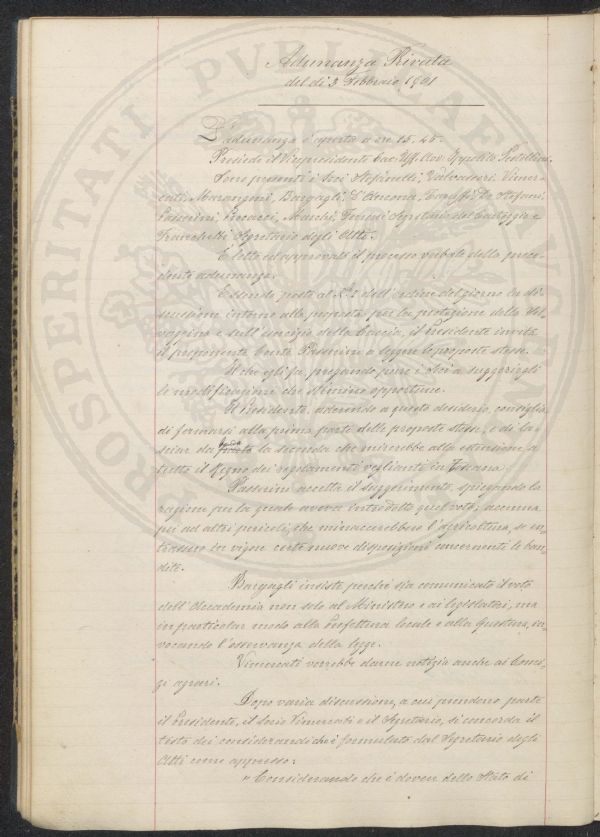 Adunanza Privata
del dì 3 Febbraio 1901
L'adunanza è aperta a ore 15.45.
Presiede il Vicepresidente Cav. Uff. Avv. Ippolito Pestellini.
Sono presenti i Soci Stefanelli, Valvassori, Vimer-
cati, Marangoni, Bargagli, D'Ancona, Caruso, De Stefani,
Passerini, Procacci, Marchi, Segretario del Carteggio e
Franchetti Segretario degli Atti.
È letto ed approvato il processo verbale della prece-
dente adunanza.
Essendo posta al N.° 1 dell'ordine del giorno la di-
scussione intorno alla proposta per la protezione della sel-
vaggina e sull'esercizio della Caccia, il Presidente invita
il proponente Conte Passerini a leggere le proposte stesse.
Il che egli fa, pregando pure i Soci a suggerirgli
le modificazioni che stimino opportune.
Il Presidente, aderendo a questo desiderio, consiglia
di fermarsi alla prima parte delle proposte stesse, e di la-
sciar da banda la seconda che mirerebbe alla estensione a
tutto il Regno dei regolamenti veglianti in Toscana.
Passerini accetta il suggerimento, spiegando la
ragione per la quale aveva introdotto quel voto; accenna
poi ad altri pericoli, che minaccerebbero l'agricoltura, se en-
trassero in vigore certe nuove disposizioni concernenti le ban-
dite.
Bargagli insiste perché sia comunicato il voto
dell'Accademia non solo al Ministero e ai legislatori, ma
in particolar modo alla Prefettura locale e alla Questura, in-
vocando l'osservanza della legge.
Vimercati vorrebbe darne notizia anche ai Comi-
zi agrari.
Dopo varia discussione, a cui prendono parte
il Presidente, il Socio Vimercati e il Segretario, si concorda il
testo dei considerandi che è formulato dal Segretario degli
Atti come appresso:
"Considerando che è dovere dello Stato di
PROSPERITATI PVBLICAE AVGENDAE